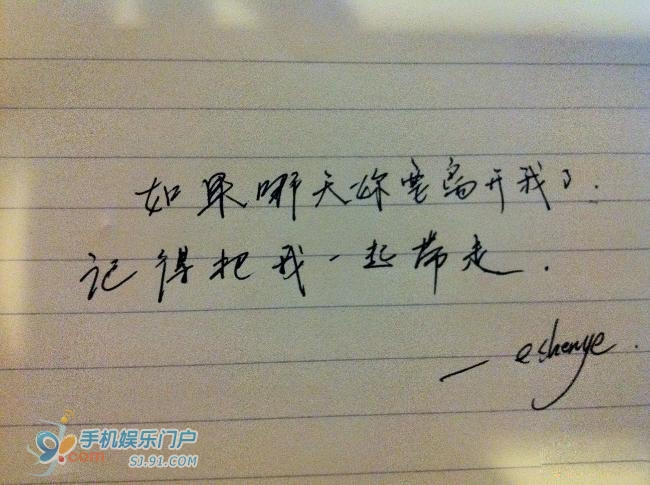 如果哪天妳要离开我了.
记得把我一起带走.
— eshenye.
手机娱乐门户
.com SJ.91.COM